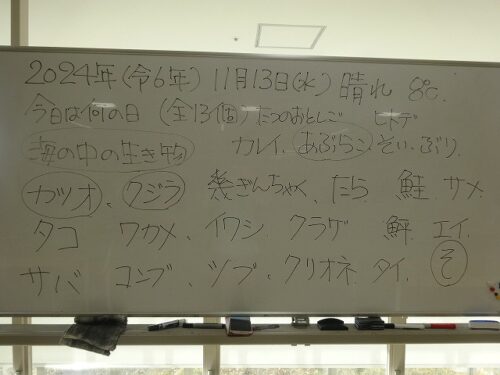 2024年(令6年) 11月13日(水) 晴れ 8℃.
今日は何の日 (全13個) たつのおとしご ヒトデ
海の中の生き物 カレイ、あぶらこ、そい、ぶり、
カツオ、クジラ 幾ぎんちゃく、たら 鮭 サメ、
タコ ワカメ、イワシ、クラゲ 鮃 エイ、
サバ コンブ、ツブ、クリオネ、タイ、そ